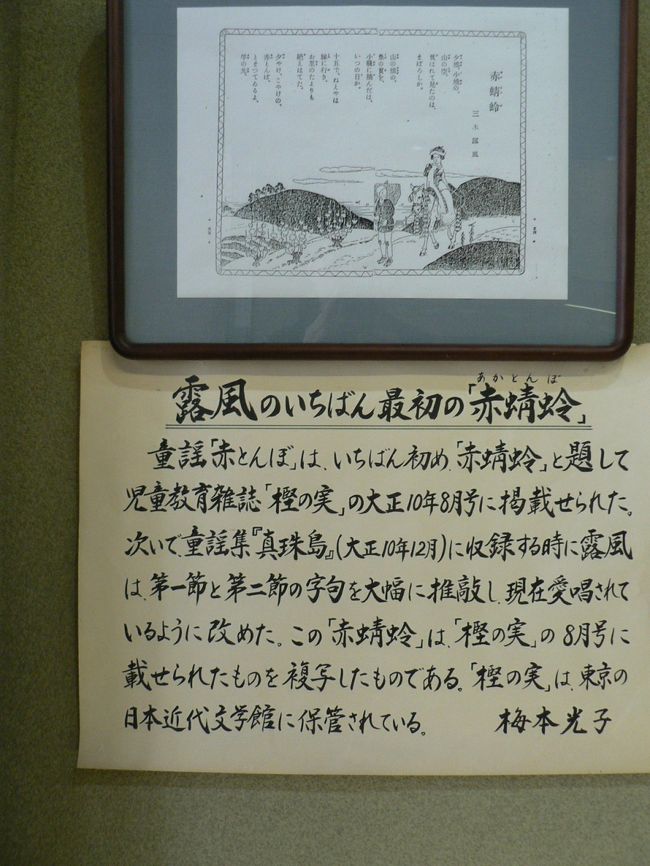 赤蜻蛉
三木露風
夕焼、小焼の、
山の空、
負はれて見たのは、
まぼろしか。
山の畑の、
桑の実を、
小籠に摘んだは、
いつの日か。
十五で、ねえやは
嫁に行き、
お里のたよりも
絶えはてた。
夕やけ、こやけの、
赤とんぼ、
とまつてゐるよ、
竿の先。
あかとんぼ
露風のいちばん最初の「赤蜻蛉」
童謡「赤とんぼ」は、いちばん初め、「赤蜻蛉」と題して
児童教育雑誌「樫の実」の大正10年8月号に掲載せられた。
次いで、童謡集『真珠島』(大正10年12月)に収録する時に露風
は、第一節と第二節の字句を大幅に推敲し、現在愛唱されて
いるように改めた。この「赤蜻蛉」は、「樫の実」の8月号に
載せられたものを複写したものである。「樫の実」は、東京の
日本近代文学館に保管されている。 梅本光子